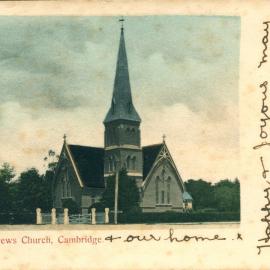 rews Church, Cambridge.
& our home. x
Happy & joyous may